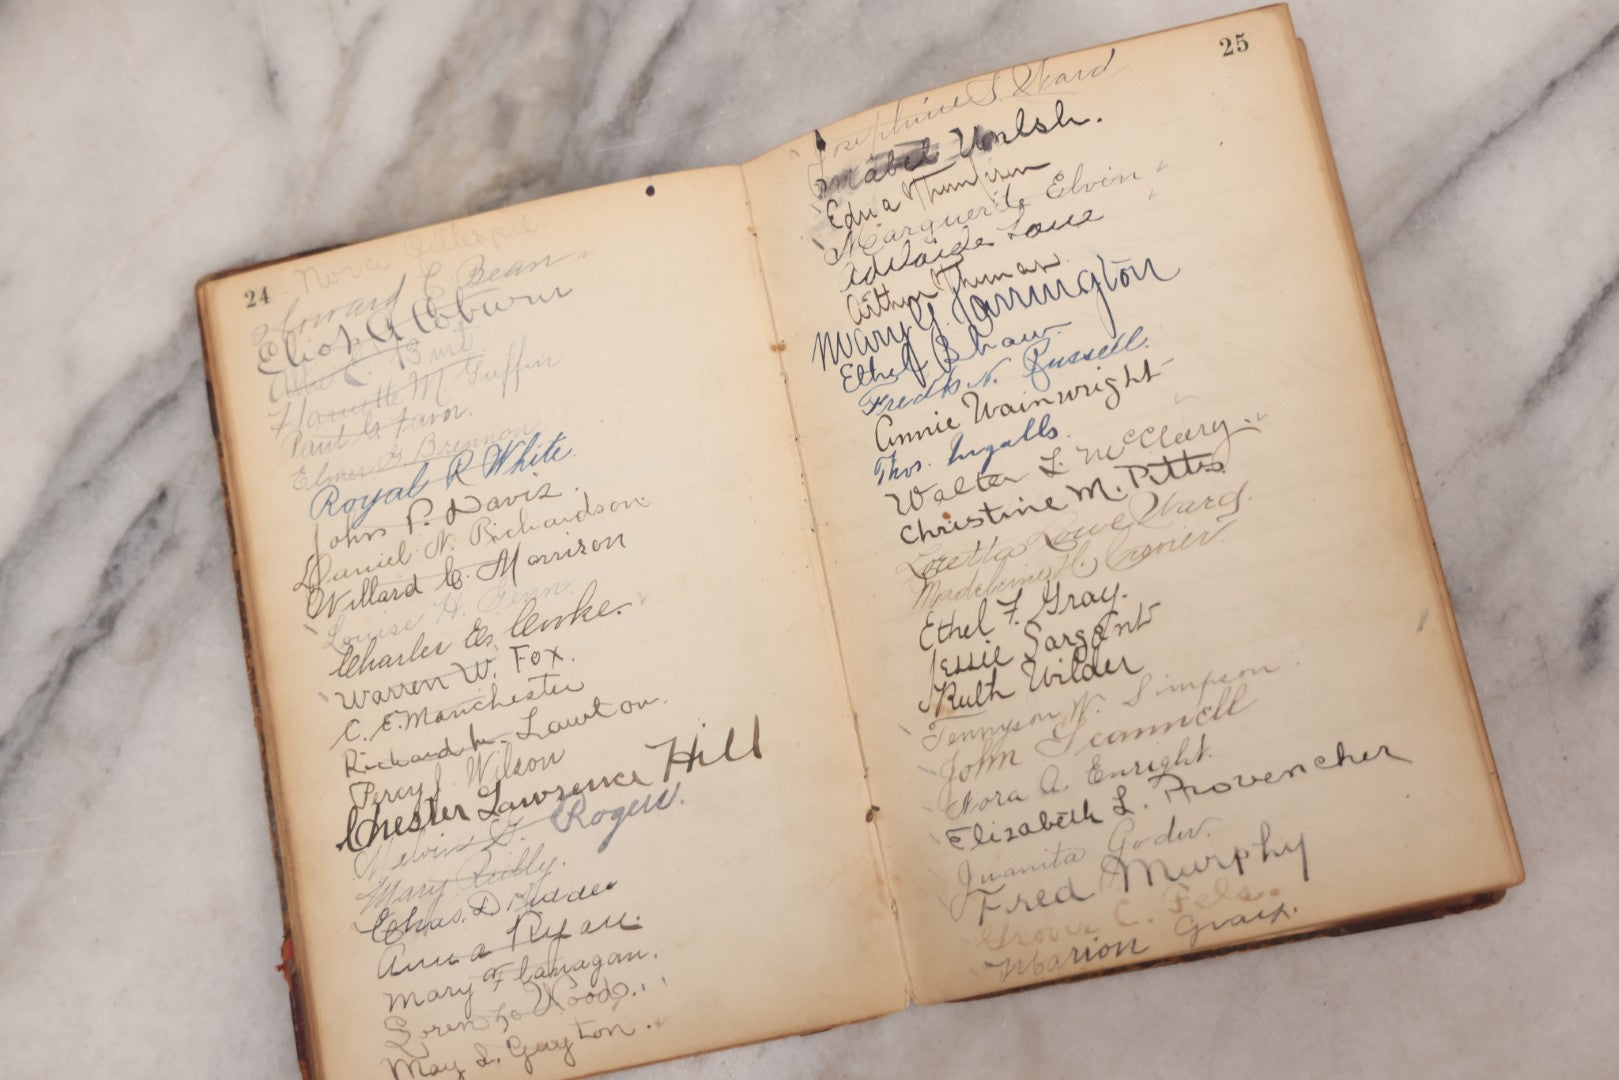 24
Nora Gillespie.
Howard C. Bean
Eliot G. Coburn
C. Burt
Harriette M. Griffin
Paul G. Favor.
Elmer G. Brennon
Royal R. White.
John P. Davis.
Daniel N. Richardson.
Willard C. Morrison
Louise H.
Charles E. Cooke.
Warren W. Fox.
C. E. Manchester
Richard M. Lawton.
Percy J. Wilson
Chester Lawrence Hill
Melvin G. Rogers.
Mary Reilly.
Chas. D. Kidder
Anna Ryan.
Mary F. Flanagan.
Lorenzo Wood.
May L. Guyton.
25
Josephine S. Ward
Mabel Walsh.
Edna Thompson
Marguerite Elvin
Adelaide Lane
Arthur Thomas.
Mary G. Farrington
Ethel B. Shaw.
Fredk N. Russell.
Annie Wainwright
Thos. Ingalls.
Walter L. McCleary.
Christine M. Pitts
Loretta Lowe Ward.
Madeleine H.
Ethel F. Gray.
Jessie Sargent
Ruth Wilder
Tennyson W. Simpson
John Scannell
Nora A. Enright.
Elizabeth L. Provencher
Juanita
Fred Murphy
Grover C. Fels.
Marion